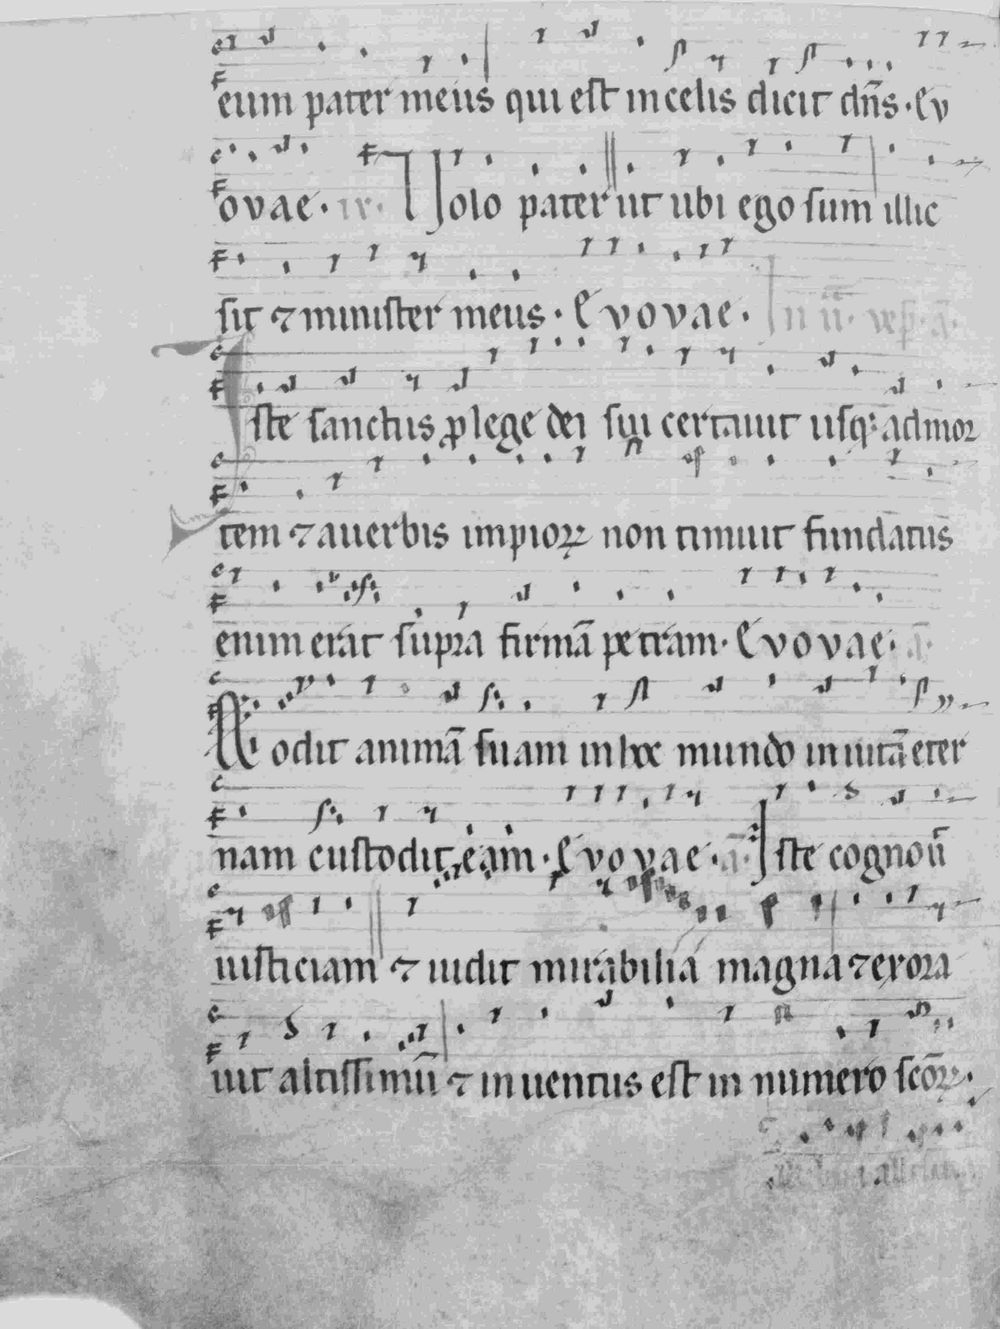 eum pater meus qui est in celis dicit dn̄s · Ev
ovae · iv · Volo pater ut ubi ego sum illic
sit ⁊ minister meus · Evovae · In ii ·
Iste sanctus ꝓ lege dei sui certauit usq; ad mor
tem ⁊ a uerbis impioꝝ non timuit fundatus
enim erat supra firmā petram · Evovae · a ·
Qui odit animā suam in hoc mundo in uitā eter
nam custodit eam · Evovae · a · Iste cognouit
iusticiam ⁊ uidit mirabilia magna ⁊ exora
uit altissimū ⁊ inuentus est in numero scōꝝ ·